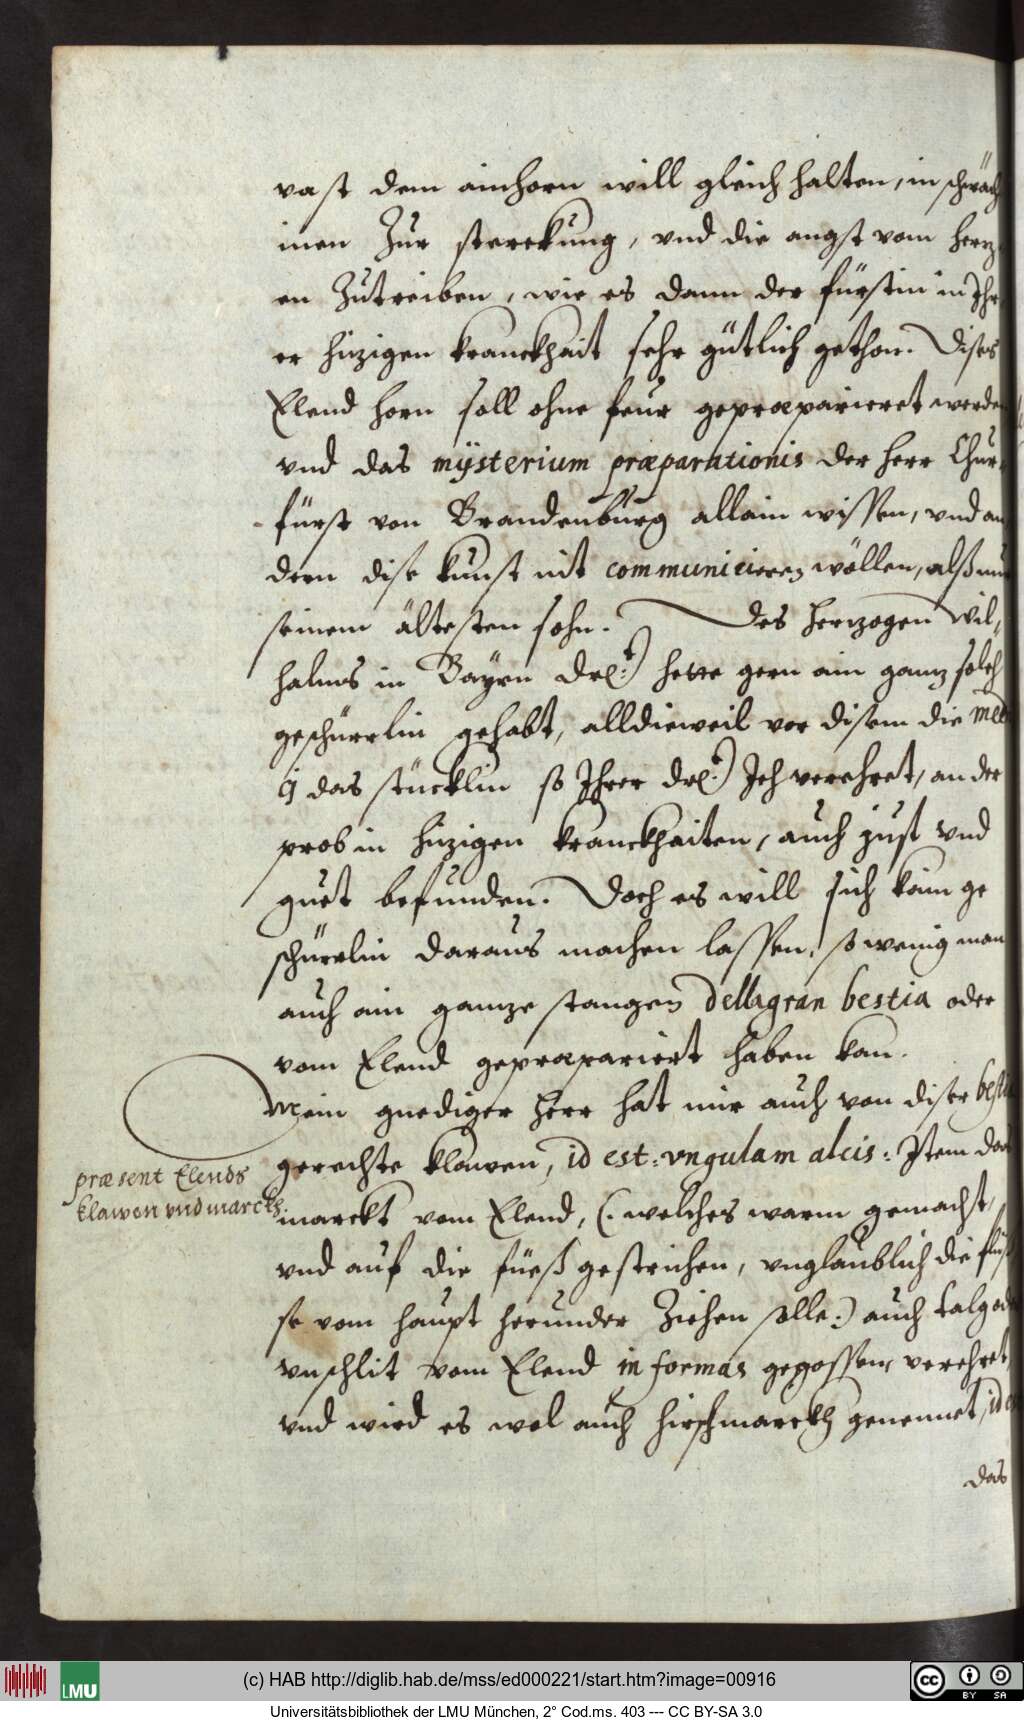 vast dem ainhorn will gleich halten, in schwäch
inen Zur sterckung, vnd die angst vom hertz
en Zutreiben, wie es dann der fürstin in Ihr
er hitzigen kranckhait sehr gütlich gethon. Dises
Elend horn soll ohne feur gepræparieret werde
vnd das mÿsterium præparationis der herr Chur
fürst von Brandenburg allain wissen, vnd an
dern dise kunst nit communicieren wöllen, alß nur
seinem ältesten sohn. Des herzogen Wil,
halms in Bayrn Drl: hette gern ain gantz solch
geschürrlin gehabt, alldieweil vor disem die Med
das stücklin so Ihrer Drl: Ich verehret, an der
prob in hitzigen kranckhaiten, auch just vnd
guet befunden. Doch es will sich kain ge
schürrlin daraus machen lassen, so wenig man
auch ain gantze stangen Dellagran bestia oder
vom Elend gepræpariert haben kan.
Mein gnediger herr hat mir auch von diser besti
præsent Elends
klawen vnd marckh.
gerechte klawen, id est: vngulam alcis: Item das
marckt vom Elend, (: welches warm gemacht,
vnd auf die füeß gestrichen, vnglaublich die flüß
se vom haupt herunder Ziehen solle:) auch talg od
vnschlit vom Elend in formas gegossen, verehret,
vnd wird es wol auch hirschmarckh genennet, id e
das
(c) HAB http://diglib.hab.de/mss/ed000221/start.htm?image=00916
Universitätsbibliothek der LMU München, 2° Cod.ms. 403 --- CC BY-SA 3.0
LMU
cc BY SA